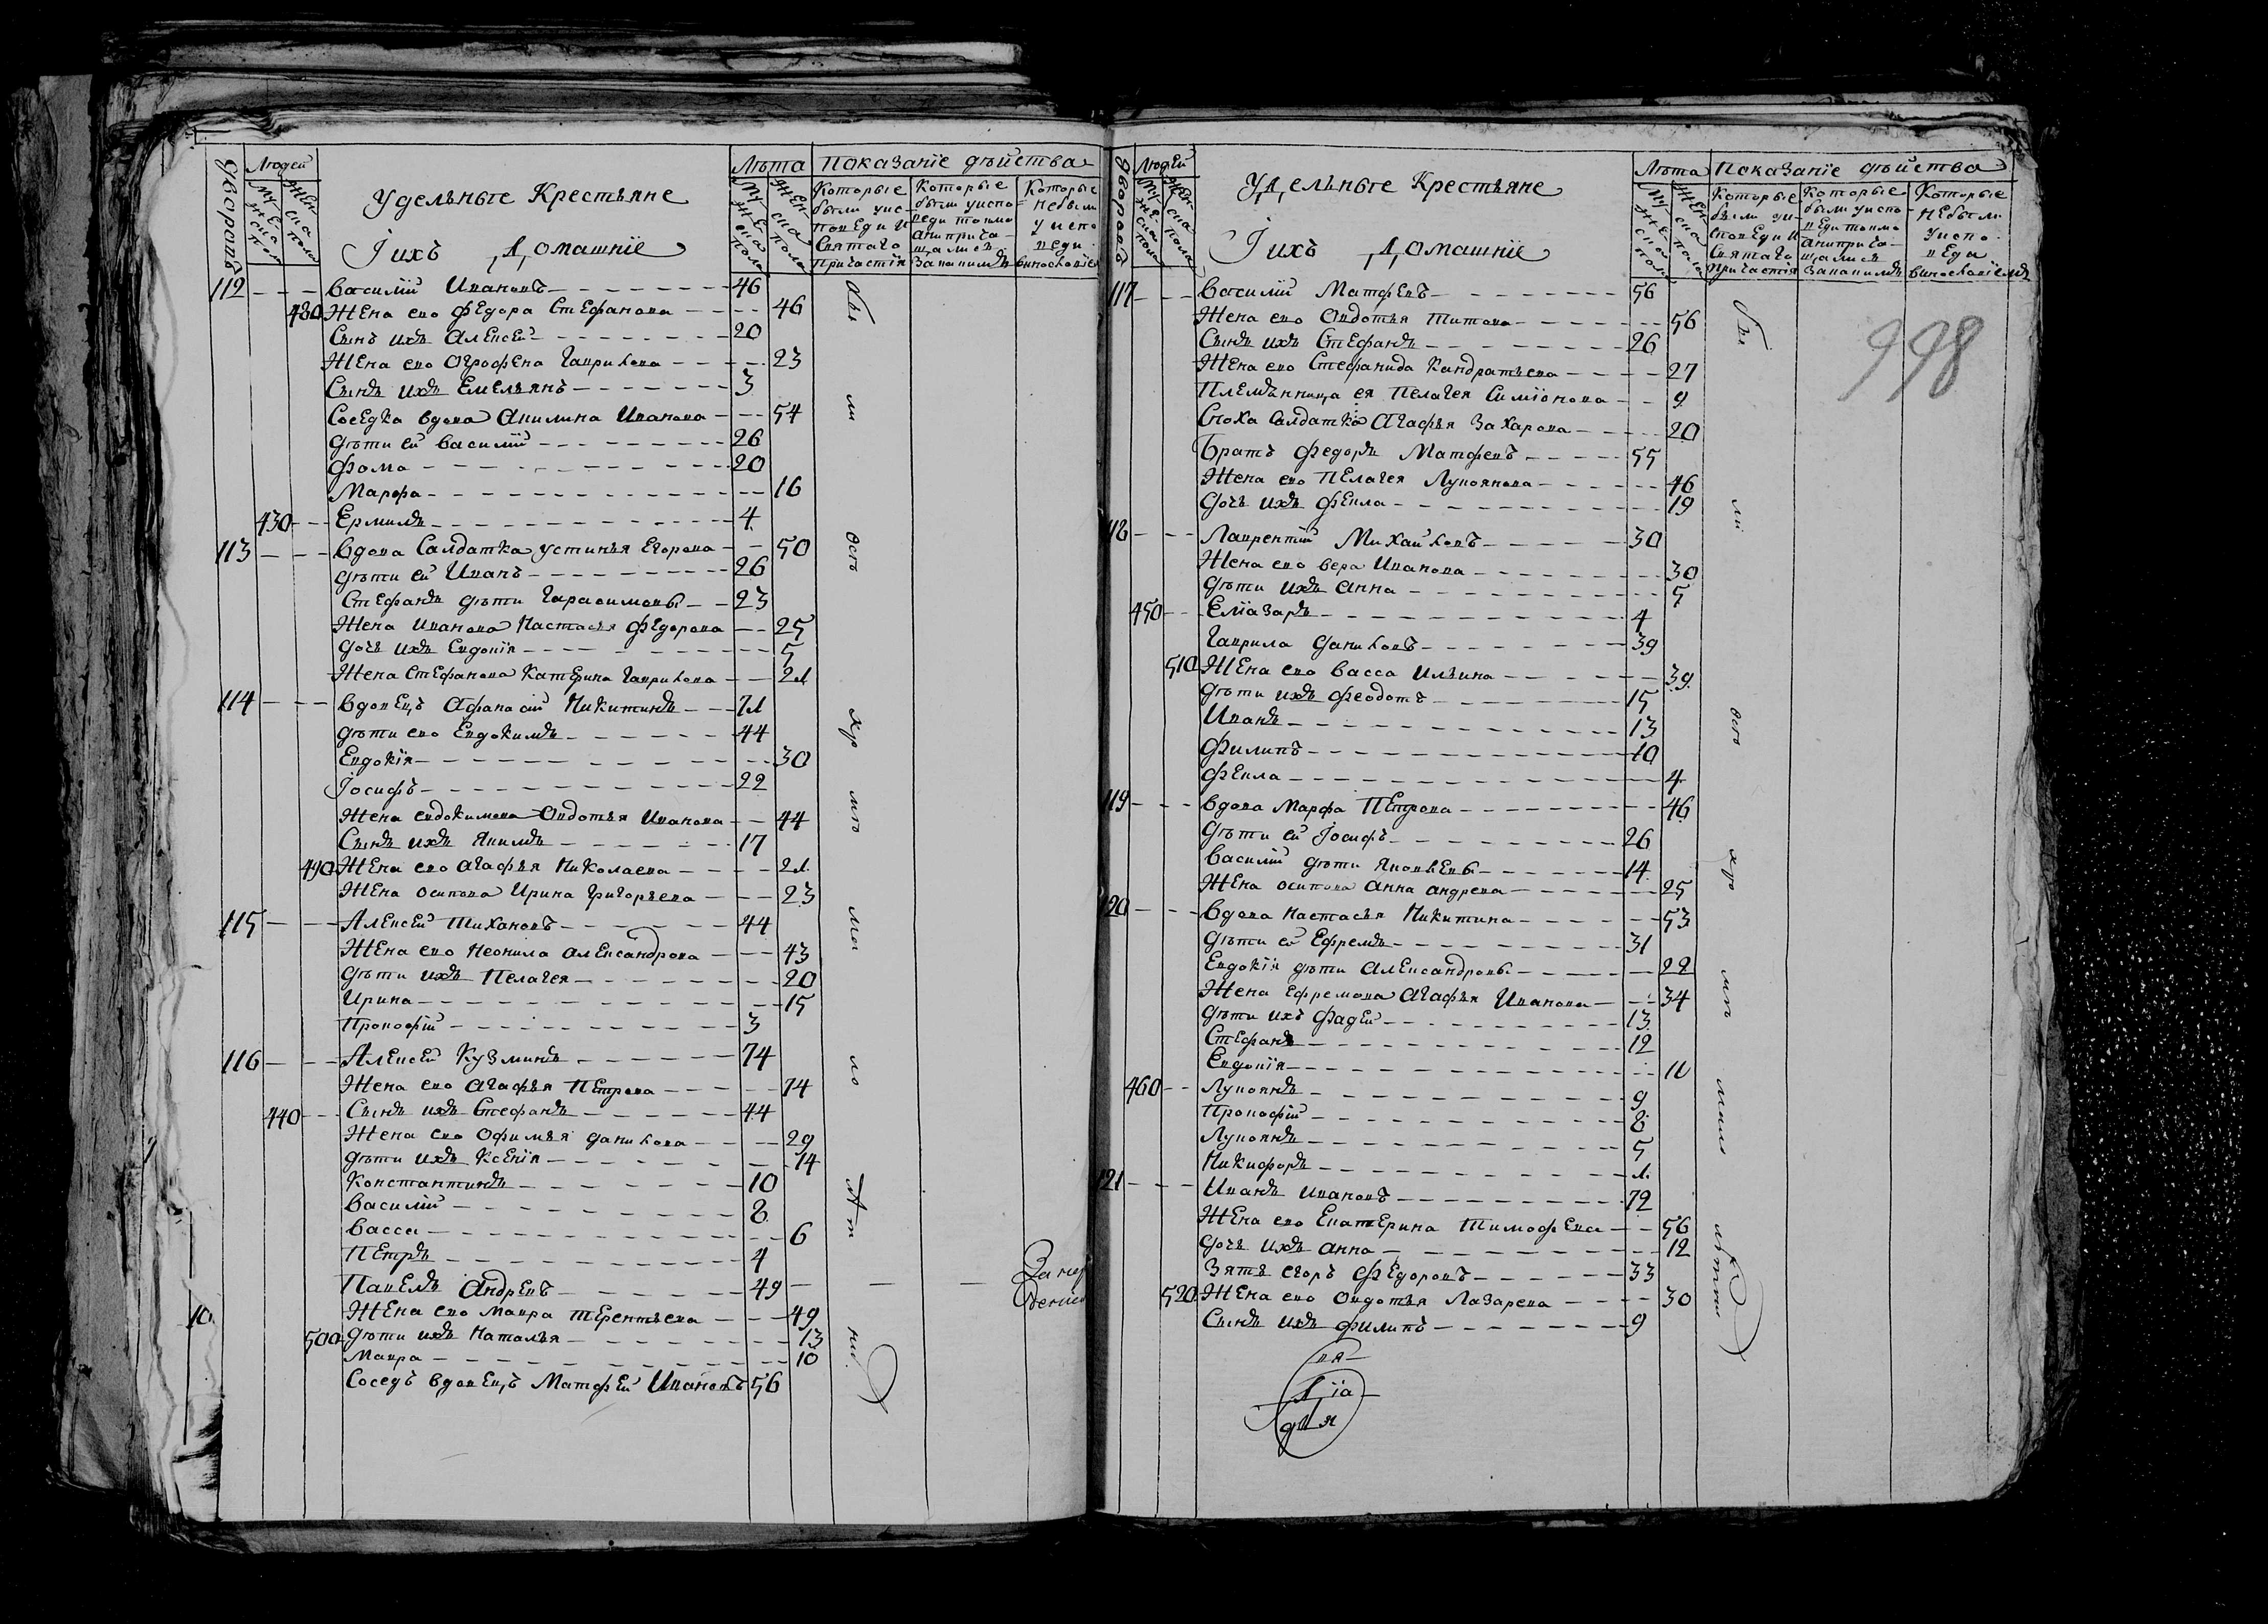 Удельныя Крестьяне
Iихъ Домашнїе
дворовъ
Людей
мужеска пола
женска пола
Лѣта
мужеска пола
женска пола
показанїе дѣйства
Которые были уисповеди и Святаго Причастїя
Которые были уисповеди токмо анипричащались
Которые небыли уисповеди
112 Василий Ивановъ 46
480 Жена его Федора Стефанова 46
Сынъ ихъ Алексей 20
Жена его Огрофена Гаврилова 23
Сынъ ихъ Емельянъ 3
Соседка вдова Акилина Иванова 54
дѣти ей Василий 26
Фома 20
Марфа 16
430 Ермилъ 4
113 вдова Салдатка Устинья Егорова 50
дѣти ей Иванъ 26
Стефанъ дѣти Гарасимовы 23
Жена Иванова Настасья Федорова 25
дочь ихъ Евдокїя 5
Жена Стефанова Катерина Гаврилова 21
114 вдовецъ Афанасий Никитинъ 71
дѣти его Евдокимъ 44
Евдокїя 30
Iосифъ 22
Жена евдокимова Овдотья Иванова 44
Сынъ ихъ Якимъ 17
490 Жена его Агафья Николаева 21
Жена осипова Ирина Григорьева 23
115 Алексей Тихановъ 44
Жена его Неонила Александрова 43
дѣти ихъ Пелагея 20
Ирина 15
Прокофий 3
116 Алексей Кузминъ 74
Жена его Агафья Петрова 74
440 Сынъ ихъ Стефанъ 44
Жена его Офимья данилова 29
дѣти ихъ Ксенїя 14
Константинъ 10
Василий 8
Васса 6
Петръ 4
Павелъ Андревъ 49
Жена его Мавра терентьева 49
500 дѣти ихъ Наталья 13
Мавра 10
Соседъ вдовецъ Матфей Ивановъ 56
10
Удельныя Крестьяне
Iихъ Домашнїе
дворовъ
Людей
мужеска пола
женска пола
Лѣта
мужеска пола
женска пола
Показанїе дѣйства
Которые были уисповеди и Святаго причастїя
Которые были уисповеди токмо анипричащались
Которые небыли уисповеди
998
117 Василий Матфевъ 56
Жена его Овдотья Титова 56
Сынъ ихъ Стефанъ 26
Жена его Стефанида Кандратьева 27
Племянница ея Пелагея Симїонова 9
Сноха Салдатка Агафья Захарова 20
Братъ Федоръ Матфевъ 55
Жена его Пелагея Лукоянова 46
дочь ихъ Фекла 19
118 Лаврентий Михайловъ 30
Жена его вера Иванова 30
дѣти ихъ Анна 5
450 Елїазаръ 4
Гаврила даниловъ 39
510 Жена его Васса Ильина 39
дѣти ихъ Феодотъ 15
Иванъ 13
Филипъ 10
Фекла 4
119 вдова Марфа Петрова 46
дѣти ей Iосифъ 26
Василий дѣти Яковлевы 14
Жена осипова Анна андрева 25
120 вдова Настасья Никитина 53
дѣти ей Ефремъ 31
Евдокїя дѣти Александровы 22
Жена ефремова Агафья Иванова 34
дѣти ихъ Фадей 13
Стефанъ 12
Евдокїя 11
460 Лукоянъ 9
Прокофий 8
Лукоянъ 5
Никифоръ 1
121 Иванъ Ивановъ 72
Жена его Екатерина Тимофева 56
дочь ихъ Анна 12
Зять егоръ Федоровъ 33
520 Жена его Овдотья Лазарева 30
Сынъ ихъ Филипъ 9